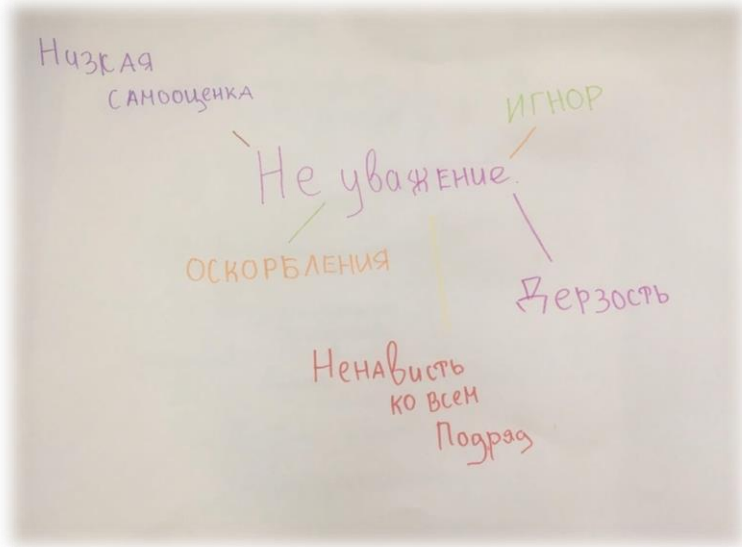 Низкая
самооценка
ИГНОР
Не уважение.
ОСКОРБЛЕНИЯ
Дерзость
Ненависть
ко всем
Подряд